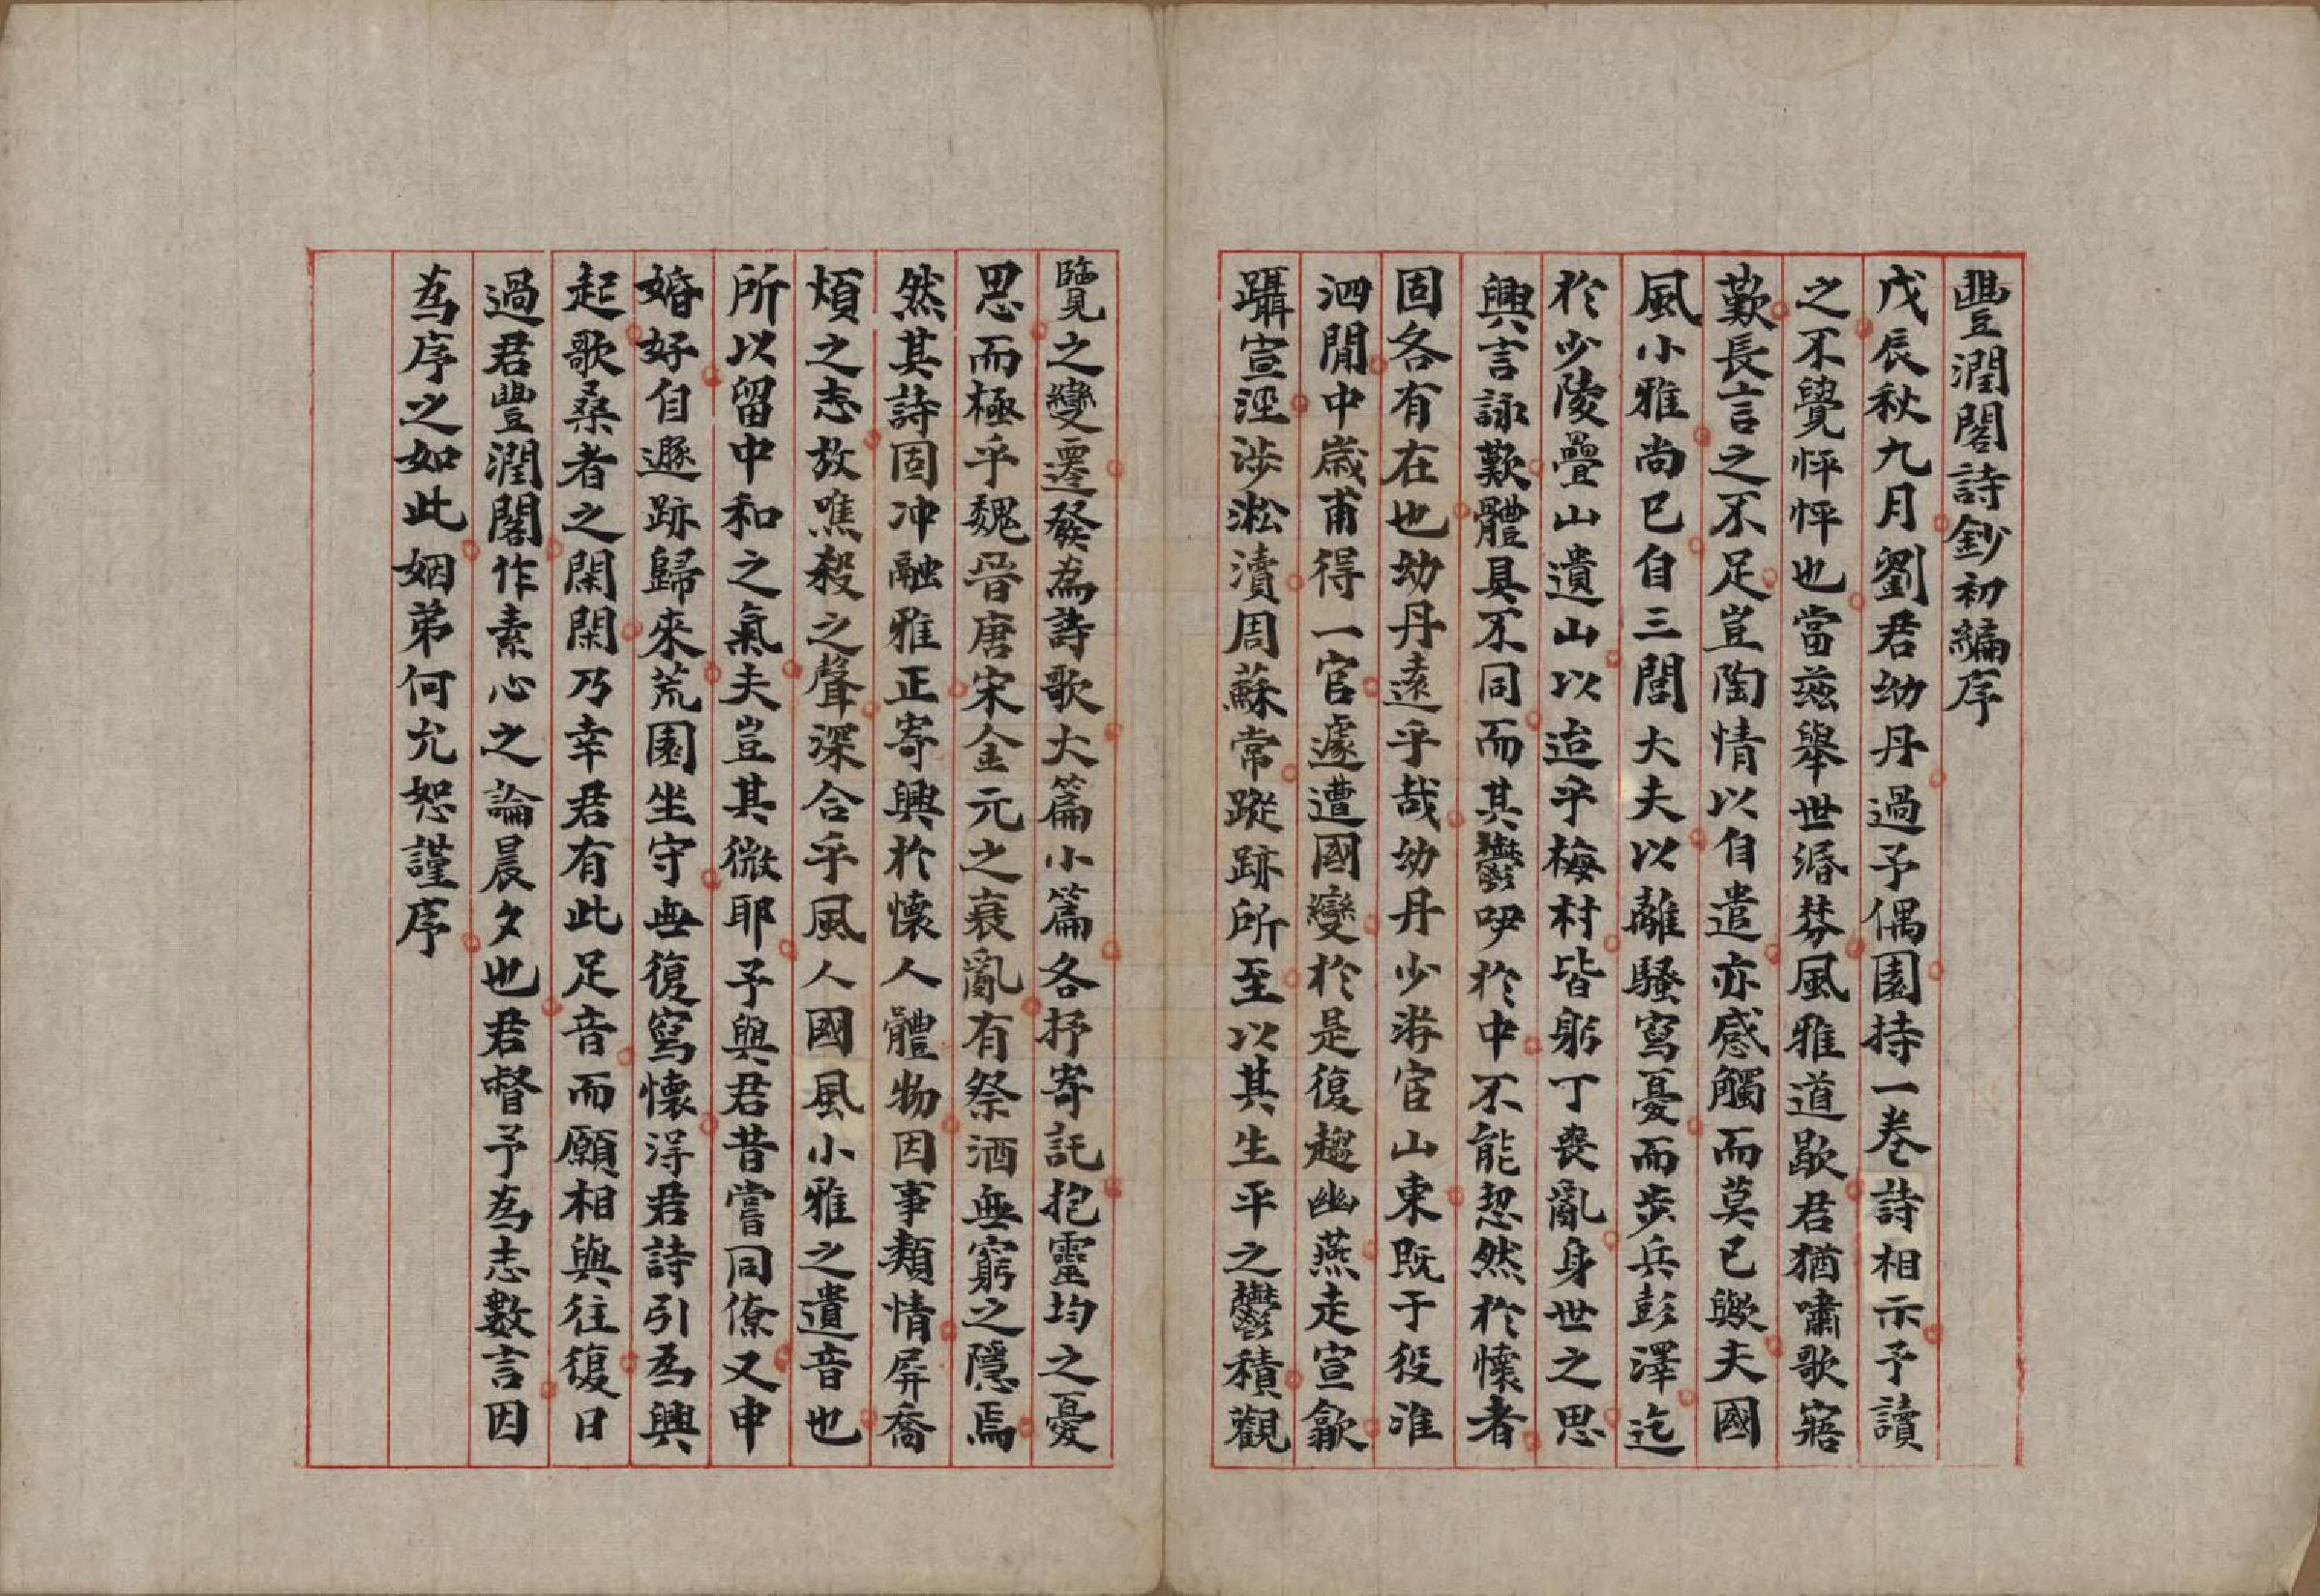 豐潤閣詩鈔初編序
戊辰秋九月劉君幼丹過予偶園持一卷詩相示予讀
之不覺怦怦也當茲舉世涽棼風雅道歇君猶嘯歌寤
歎長言之不足豈陶情以自遣亦感觸而莫已歟夫國
風小雅尚已自三閭大夫以離騷寫憂而步兵彭澤迄
於少陵疊山遺山以迨乎梅村皆躬丁喪亂身世之思
興言詠歎體具不同而其鬱咿於中不能恝然於懷者
固各有在也幼丹遠乎哉幼丹少游宦山東既于役淮
泗閒中歲甫得一官遽遭國變於是復趨幽燕走宣歙
躡宣涇涉淞瀆周蘇常蹤跡所至以其生平之鬱積觀
覽之變遷發為詩歌大篇小篇各抒寄託抱靈均之憂
思而極乎魏晉唐宋金元之衰亂有祭酒無窮之隱焉
然其詩固冲融雅正寄興於懷人體物因事類情屏喬
煩之志放噍殺之聲深合乎風人國風小雅之遺音也
所以留中和之氣夫豈其微耶予與君昔嘗同僚又申
婚好自遯跡歸來荒園坐守無復寫懷得君詩引為興
起歌桑者之閑閑乃幸君有此足音而願相與往復日
過君豐潤閣作素心之論晨夕也君督予為志數言因
為序之如此姻弟何允恕謹序